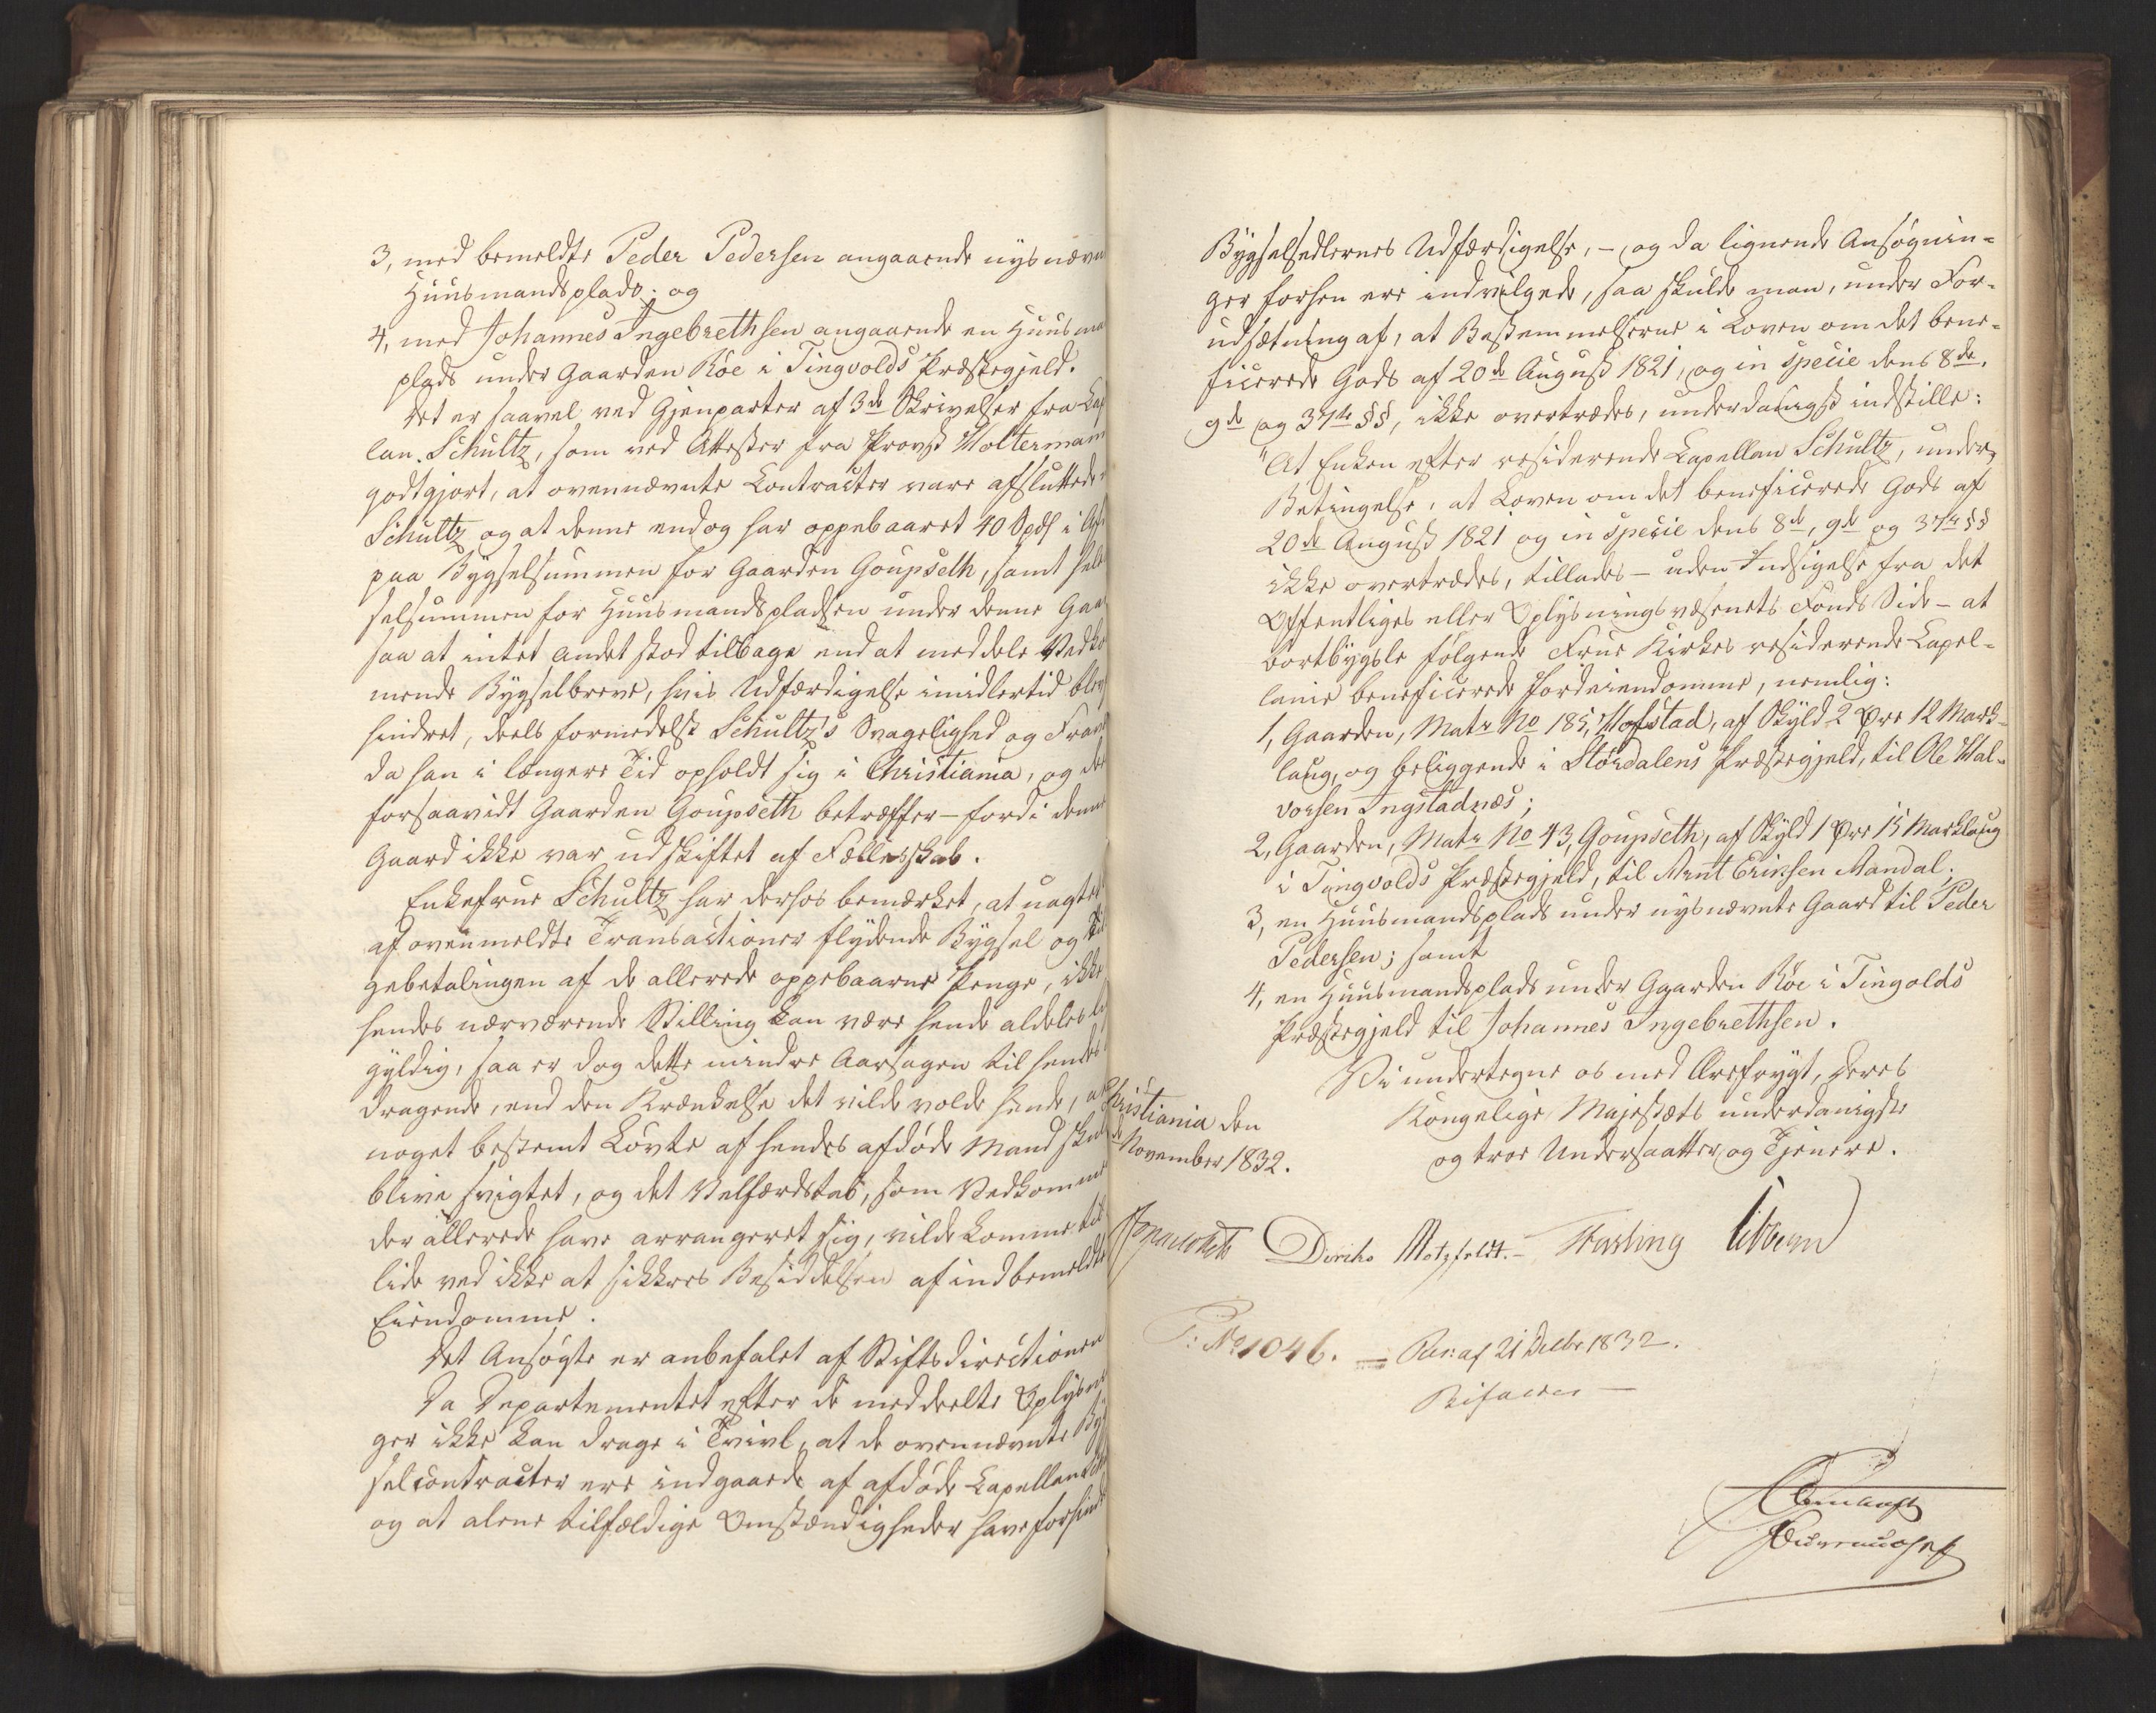 3, med bemeldte Peder Pedersen angaaende nysnævn
Huusmandsplads; og
4, med Johannes Ingebrethsen angaaende en Huusma
plads under Gaarden Röe i Tingvolds Præstegjeld.
Det er saavel ved Gjenparter af 3de Skrivelser fra Cap
lan Schultz, som ved Attester fra Provst Woltermann
godtgjort, at ovennævnte Contracter vare afsluttede
Schultz og at denne endog har oppebaaret 40 Spd i
paa Bygselsummen for Gaarden Goupseth, samt hele
selsummen for Huusmandspladsen under denne Gaa
saa at intet andet stod tilbage end at meddele Vedko
mende Bygselbreve, hvis Udfærdigelse imidlertid blev
hindret, deels formedelst Schultz's Svagelighed og Fra
da han i længere Tid opholdt sig i Christiania, og de
forsaavidt Gaarden Goupseth betræffer - fordi denne
Gaard ikke var udskiftet af Fælledsskab.
Enkefrue Schultz har derhos bemærket, at uagtet
af ovenmeldte Transactioner flydende Bygsel og Til
gebetalingen af de allerede oppebaarne Penge, ikke
hendes nærværende Stilling kan være hende aldeles li
gyldig, saa er dog dette mindre Aarsagen til hendes
dragende, end den Krænkelse det vilde volde hende, at
noget bestemt Løvte af hendes afdøde Mand skul
blive svigtet, og det Velfærdstab, som Vedkomme
der allerede have arrangeret sig, vilde komme til
lide ved ikke at sikkres Besiddelsen af indbemeldte
Eiendomme.
Det Ansøgte er anbefalet af Stiftsdirectionen
Da Departementet efter de meddeelte Oplysni
ger ikke kan drage i Tvivl, at de ovennævnte Byg
selcontracter ere indgaaede af afdøde Capellan
og at alene tilfældige Omstændigheder have forhind
Bygselsedlernes Udfærdigelse, - og da lignende Ansøgnin-
ger forhen ere indvilgede, saa skulde man, under For-
udsætning af, at Bestemmelserne i Loven om det bene-
ficerede Gods af 20de August 1821, og in specie dens 8de,
9de og 37te §§, ikke overtrædes, underdanigst indstille:
"At Enken efter residerende Capellan Schultz, under
Betingelse, at Loven om det beneficerede Gods af
20de August 1821 og in specie dens 8de, 9de og 37te §§
ikke overtrædes, tillades - uden Indsigelse fra det
Offentliges eller Oplysningsvæsenets Fonds Side - at
bortbygsle følgende Frue Kirkes residerende Capel-
lanie beneficerede Jordeiendomme, nemlig:
1, Gaarden, Matr No 185, Hofstad, af Skyld 2 Øre 12 Mark-
laug, og beliggende i Størdalens Præstegjeld, til Ole Hal-
vorsen Ingstadnæs;
2, Gaarden, Matr No 43, Goupseth, af Skyld 1 Øre 15 Marklaug
i Tingvolds Præstegjeld, til Arnt Eriksen Aandal;
3, en Huusmandsplads under nysnævnte Gaard til Peder
Pedersen; samt
4, en Huusmandsplads under Gaarden Röe i Tingolds
Præstegjeld til Johannes Ingebrethsen.
Vi undertegne os med Ærefrygt, Deres
Kongelige Majestæts underdanigste
og troe Undersaatter og Tjenere.
Christiania den
de November 1832.
Diriks Motzfeldt. - Vibbern
P: No 1046. - Res: af 21 Decbr 1832.
Bifaldes -